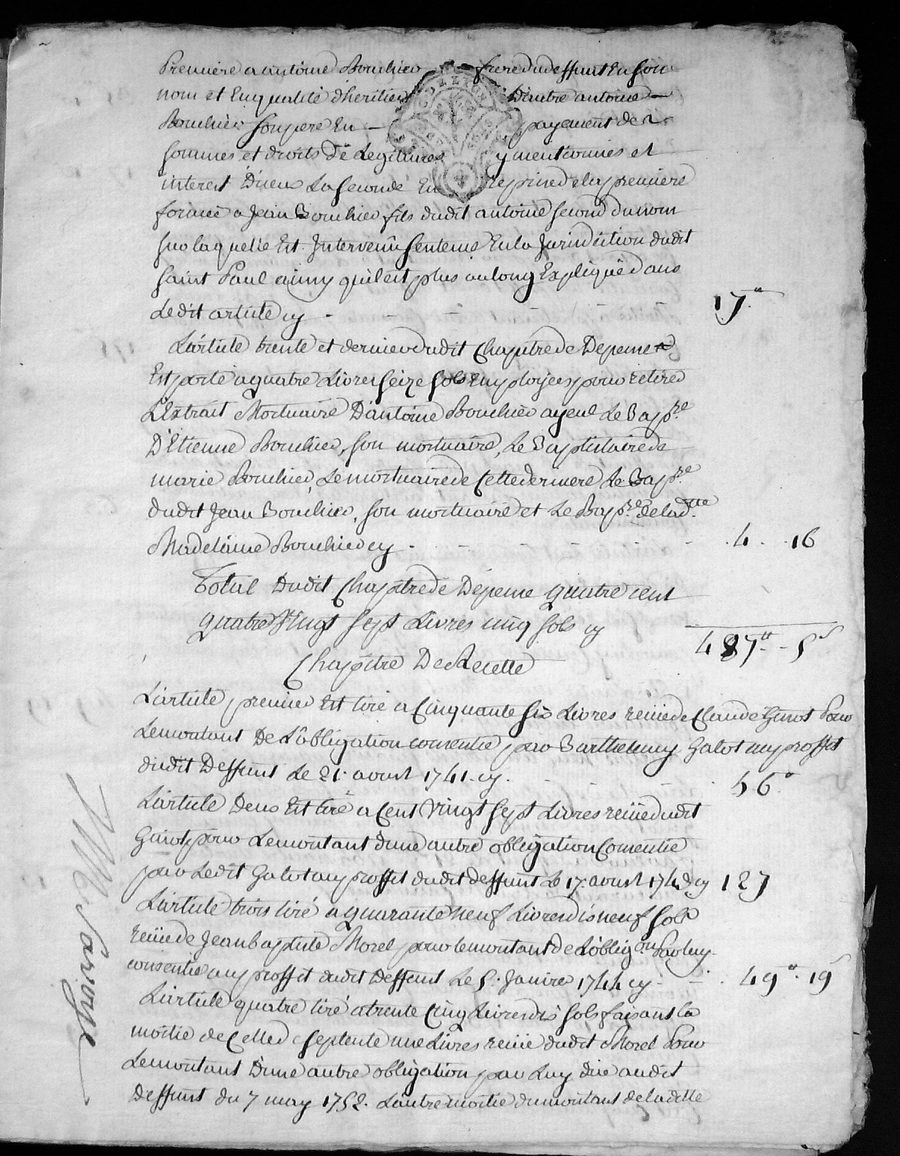 Premiere a antoine Bouchier frere du deffunt En son
nom et Enqualité d'heritier D'autre antoine
Bouchier son pere En payement de
sommes et droits de Legitimes y mentionnés et
interest D'iceux La seconde En reprise de la premiere
formée a Jean Bouchier fils dudit antoine second du nom
sur laquelle Est Intervenu sentence En la Juridiction dudit
saint Paul ainsy quil est plus au long Expliqué dans
ledit article cy - 17.
L'article trente et dernier dudit Chapitre de Depense
Est porté a quatre Livres seize sols Employées pour retirer
L'Extrait Mortuaire D'antoine Bouchier ayeul Le Bap.re
D'Etienne Bouchier, son mortuaire, Le Baptistaire de
marie Bouchier, Le mortuaire de Cette derniere Le Bap.re
dudit Jean Bouchier, son mortuaire et Le Bap.re de lad.tte
Madelaine Bouchier cy - 4. 16
Total Dudit Chapitre de Depense quatre cent
quatre Vingt sept Livres cinq sols cy 487.tt 5.s
Chapitre De Recette
L'article premier Est tiré a Cinquante six Livres reçüe de Claude Girot Pour
Le montant De L'obligation consentie par Barthelemy Galot au proffit
dudit Deffunt Le 21. aoust 1741. cy. 56.
L'article Deux Est tiré a Cent Vingt sept Livres reçüe dudit
Girot pour Le montant d'une autre obligation Consentie
par Ledit Galot au proffit dudit deffunt Le 17. aoust 174 cy 127
L'article trois tiré a quarante neuf Livres dix neuf sols
reçüe de Jean Baptiste Morel pour le montant de L'oblig.on Par luy
consentie au proffit dudit Deffunt Le 5. Janvier 1744 cy. 49.tt 19
L'article quatre tiré a trente Cinq Livres dix sols faisant la
moitié de Celle de Septente une Livres reçüe dudit Morel Pour
Le montant D'une autre obligation par Luy düe audit
Deffunt du 7 may 1752. L'autre moitié du montant de la dette